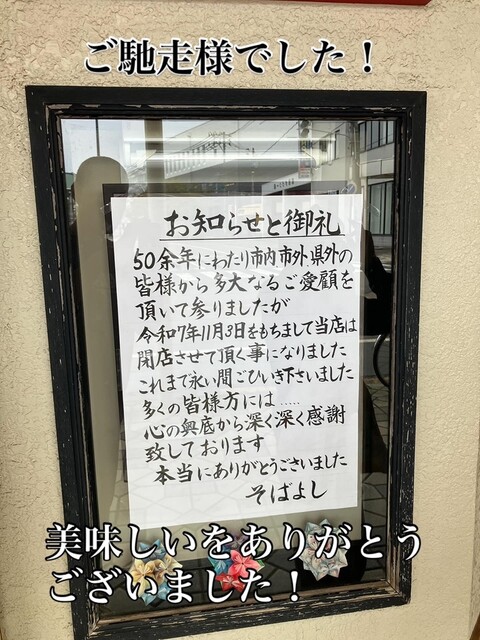 ご馳走様でした！
お知らせと御礼
50余年にわたり市内市外県外の
皆様から多大なるご愛顧を
頂いて参りましたが
令和7年11月3日をもちまして当店は
閉店させて頂く事になりました
これまで永い間ごひいき下さいました
多くの皆様方には……
心の奥底から深く深く感謝
致しております
本当にありがとうございました
そばよし
美味しいをありがとう
ございました！